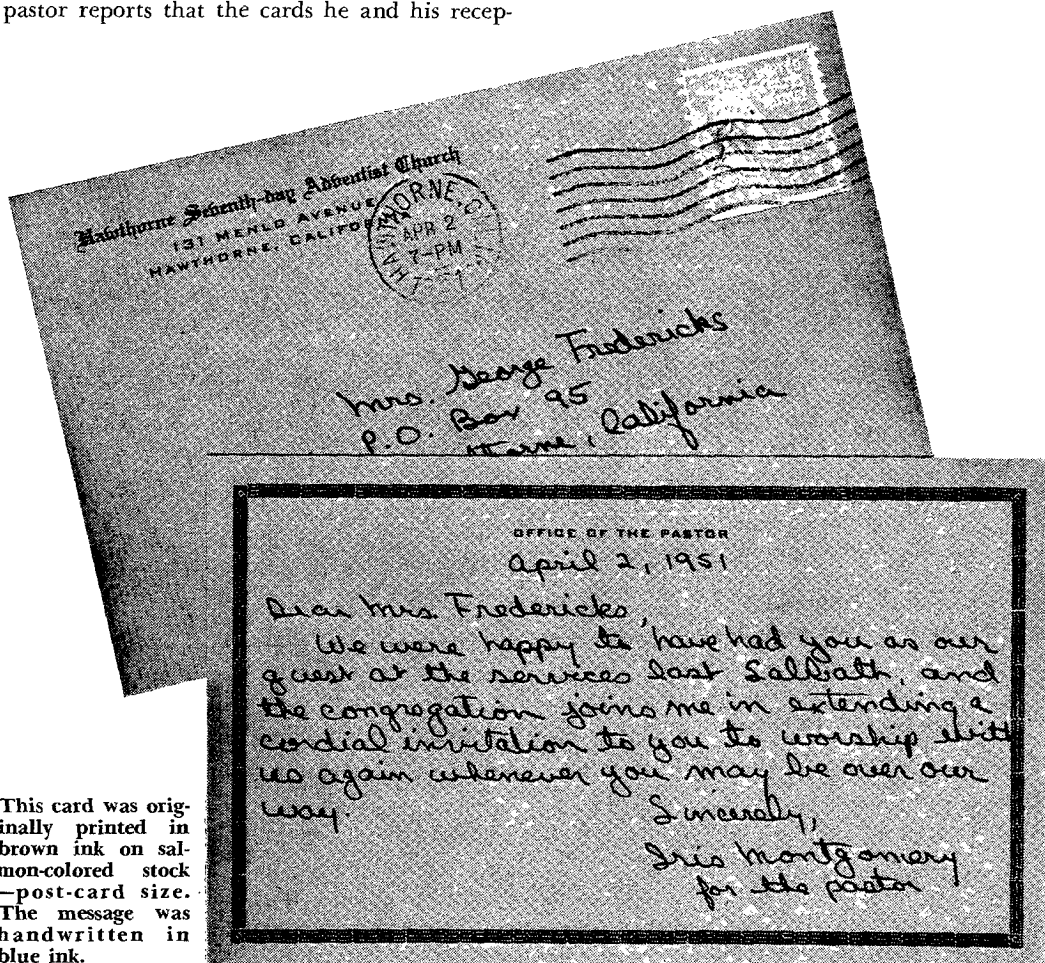 pastor reports that the cards he and his recep-
Hawthorne Seventh-day Adventist Church
131 MENLO AVENUE
HAWTHORNE, CALIFORNIA
HAWTHORNE, C
APR 2
7-PM
Mrs. George Fredericks
P.O. Box 95
California
OFFICE OF THE PASTOR
April 2, 1951
Dear Mrs. Fredericks,
We were happy to have had you as our
guest at the services last Sabbath, and
the congregation joins me in extending a
cordial invitation to you to worship with
us again whenever you may be over our
way.
Sincerely,
Iris Montgomery
for the pastor
This card was orig-
inally printed in
brown ink on sal-
mon-colored stock
—post-card size.
The message was
handwritten in
blue ink.